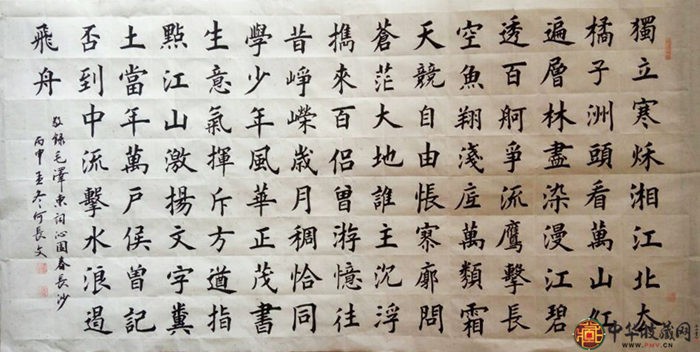 獨立寒秌湘江北去
橘子洲頭看萬山紅
遍層林盡染漫江碧
透百舸爭流鷹擊長
空魚翔淺底萬類霜
天競自由悵寥廓問
蒼茫大地誰主沉浮
攜來百侶曾游憶往
昔崢嶸歲月稠恰同
學少年風華正茂書
生意氣揮斥方遒指
點江山激揚文字糞
土當年萬戶侯曾記
否到中流擊水浪遏
飛舟
敬錄毛澤東詞沁園春長沙
丙申孟冬何長文
中华收藏网
WWW.PMV.CN